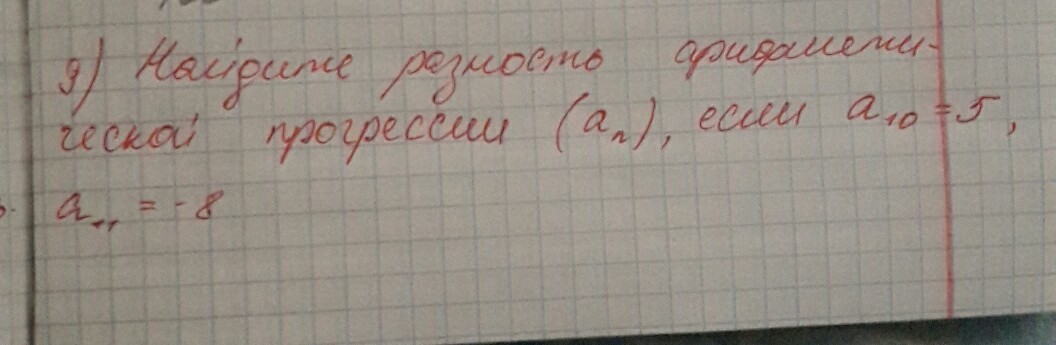 д) Найдите разность арифмети-
ческой прогрессии (aₙ), если a₁₀ = 5,
a₁₁ = -8